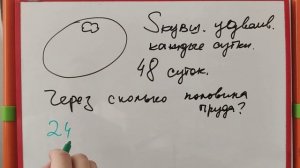 Sкувш. удваив.
каждые сутки.
48 суток.
Через сколько половина
пруда?
24